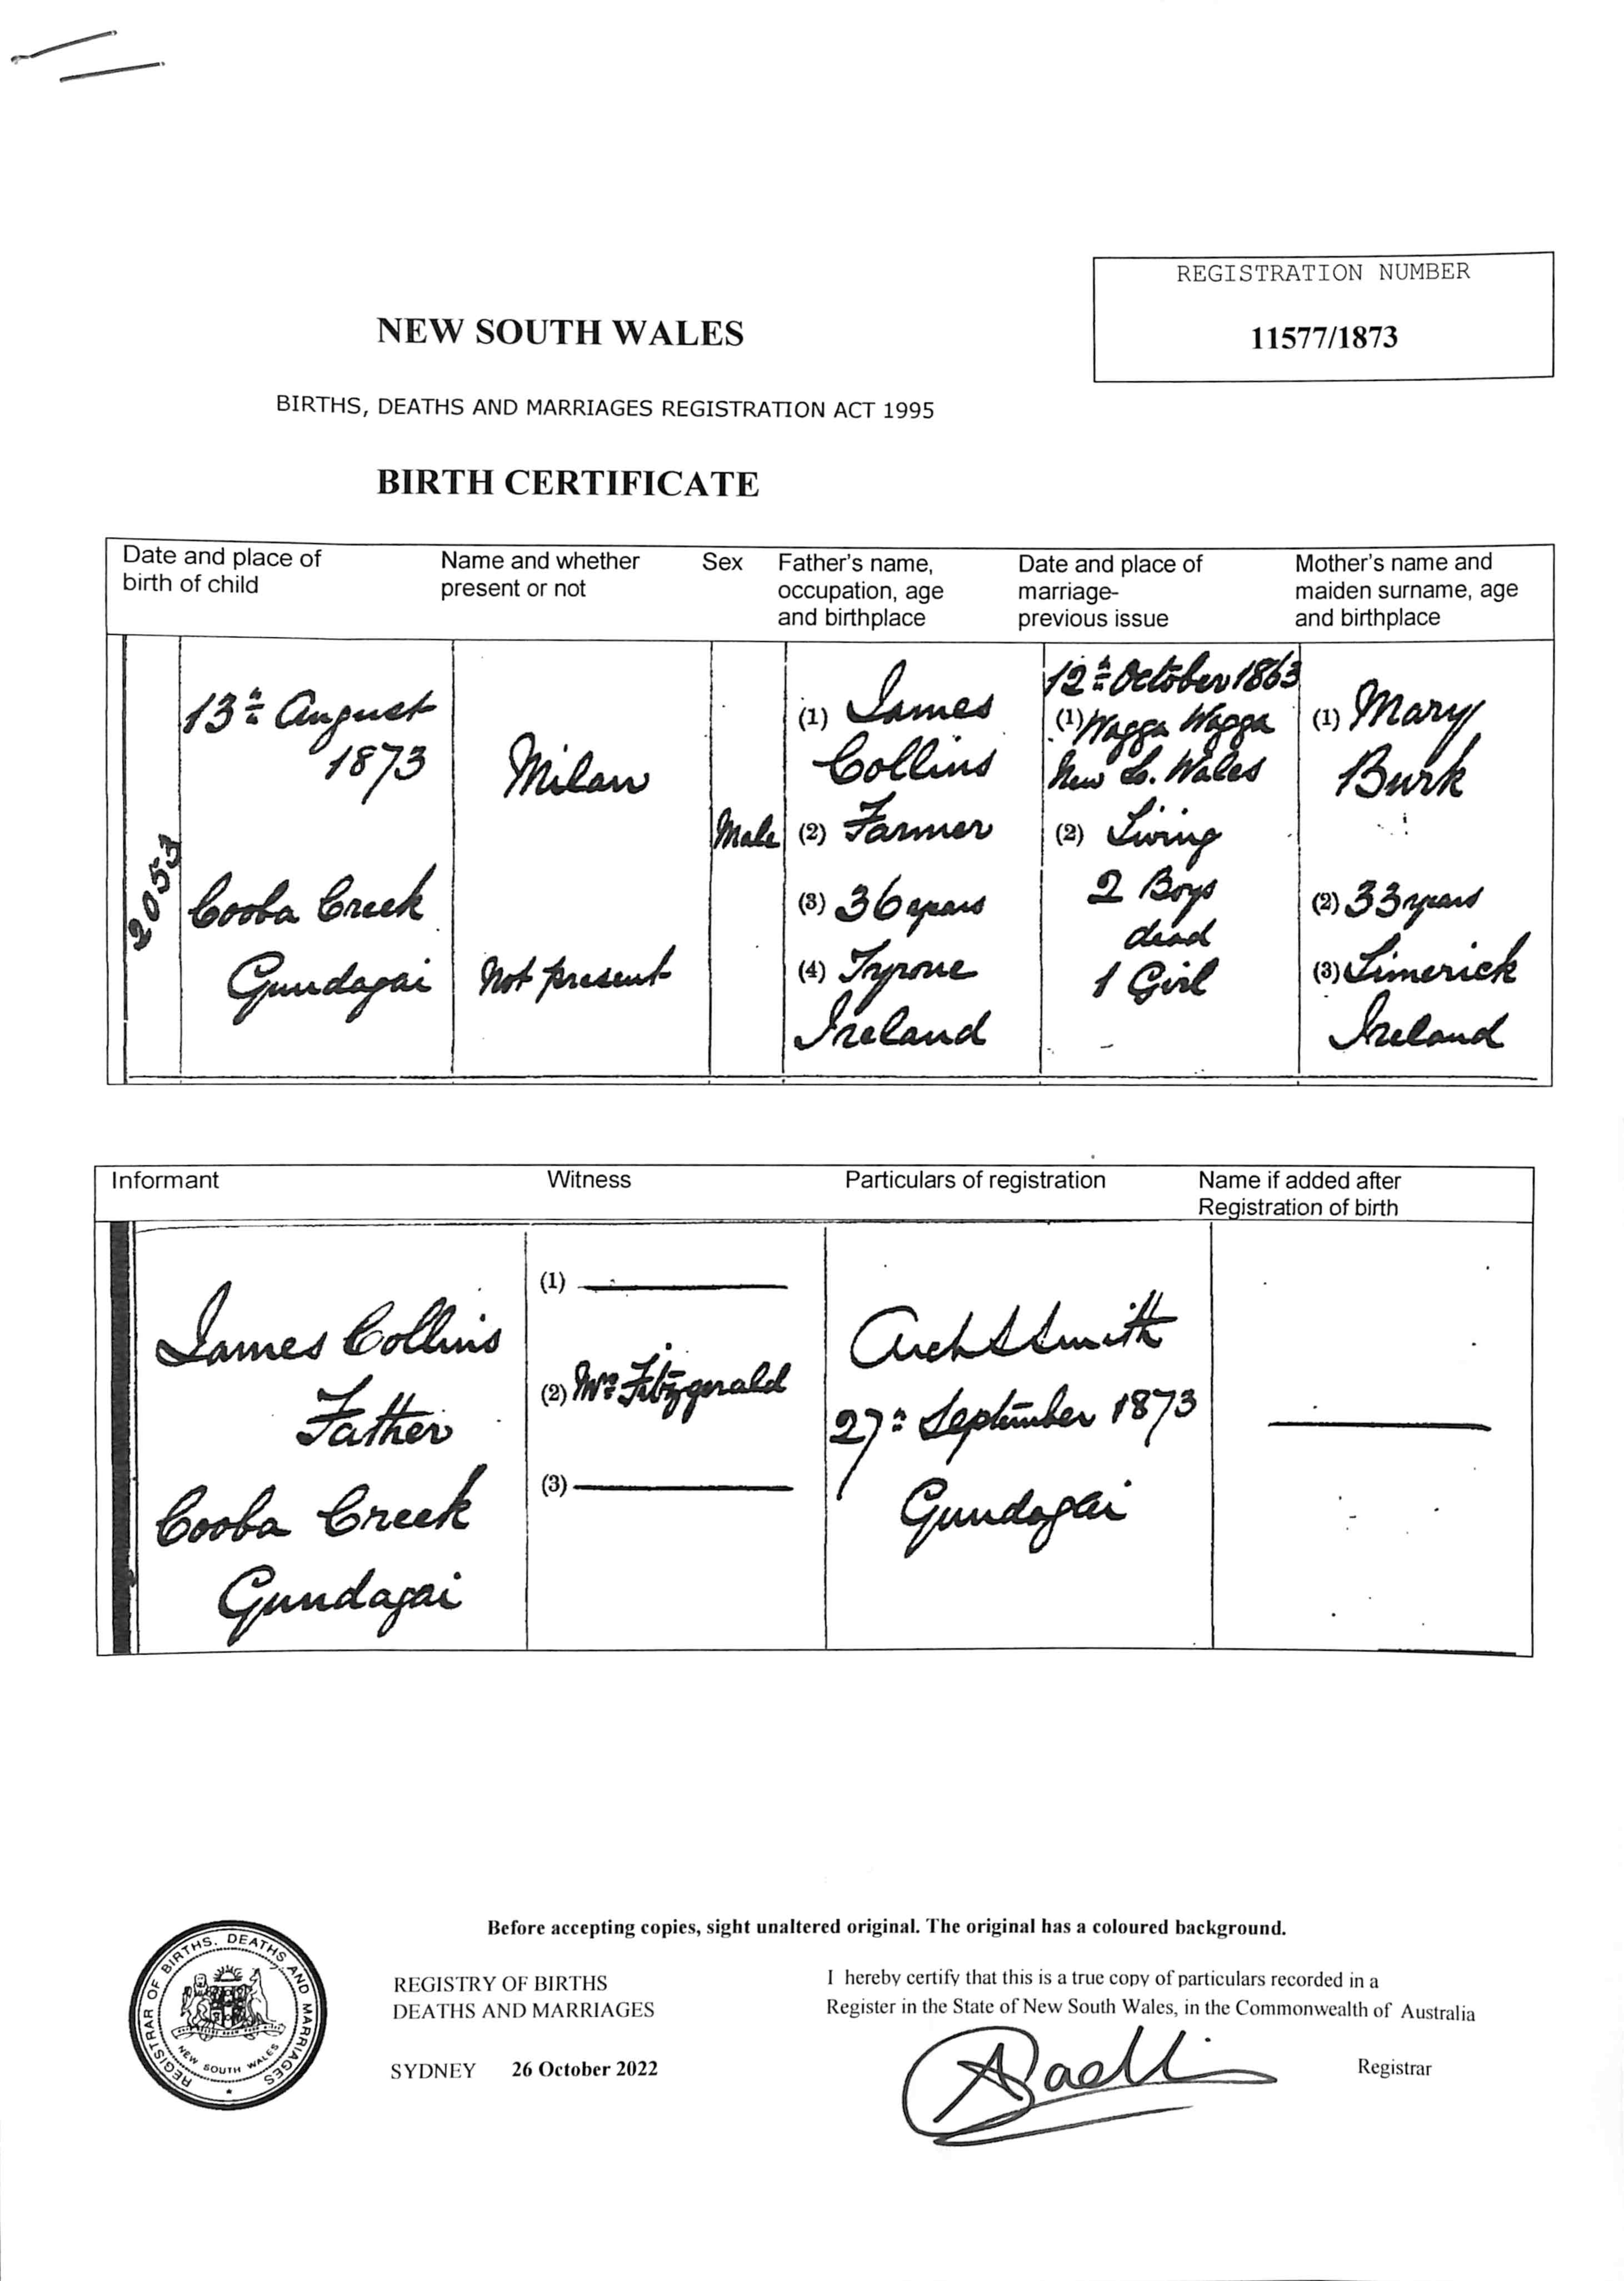 REGISTRATION NUMBER
11577/1873
NEW SOUTH WALES
BIRTHS, DEATHS AND MARRIAGES REGISTRATION ACT 1995
BIRTH CERTIFICATE
Date and place of
birth of child
Name and whether
present or not
Sex
Father's name,
occupation, age
and birthplace
Date and place of
marriage-
previous issue
Mother's name and
maiden surname, age
and birthplace
2053
13th August
1873
Cooba Creek
Gundagai
Milan
Not present
Male
(1) James
Collins
(2) Farmer
(3) 36 years
(4) Tyrone
Ireland
12th October 1863
(1) Wagga Wagga
New S. Wales
(2) Living
2 Boys
dead
1 Girl
(1) Mary
Burk
(2) 33 years
(3) Limerick
Ireland
Informant
Witness
Particulars of registration
Name if added after
Registration of birth
James Collins
Father
Cooba Creek
Gundagai
(1)
(2) Mrs Fitzgerald
(3)
Smith
27th September 1873
Gundagai
Before accepting copies, sight unaltered original. The original has a coloured background.
REGISTRAR OF BIRTHS, DEATHS AND MARRIAGES
NEW SOUTH WALES
REGISTRY OF BIRTHS
DEATHS AND MARRIAGES
SYDNEY 26 October 2022
I hereby certify that this is a true copy of particulars recorded in a
Register in the State of New South Wales, in the Commonwealth of Australia
Registrar